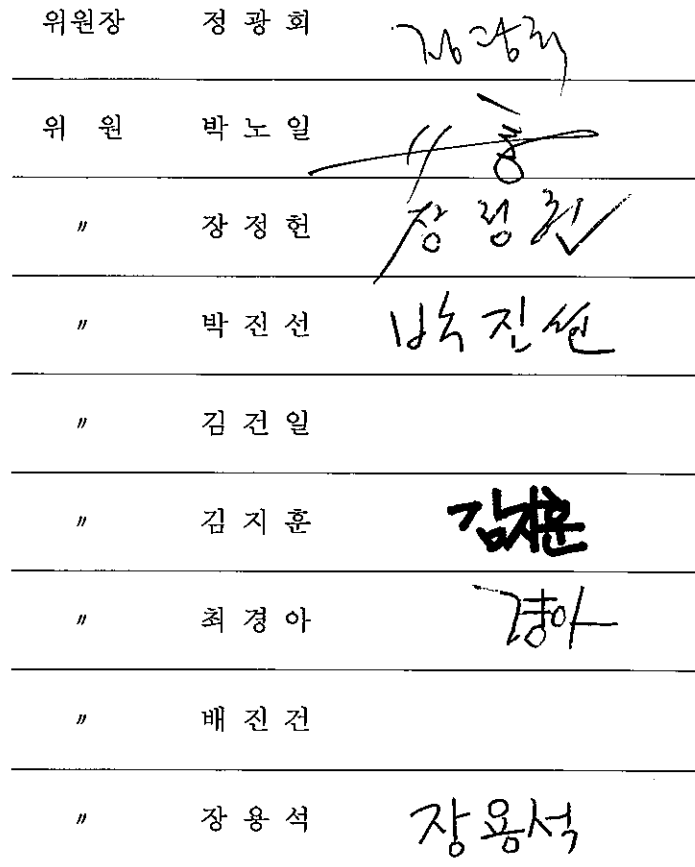 위원장 정 광 회 정광회
위 원 박 노 일
〃 장 정 헌 장정헌
〃 박 진 선 박진선
〃 김 건 일
〃 김 지 훈 김지훈
〃 최 경 아 경아
〃 배 진 건
〃 장 용 석 장용석